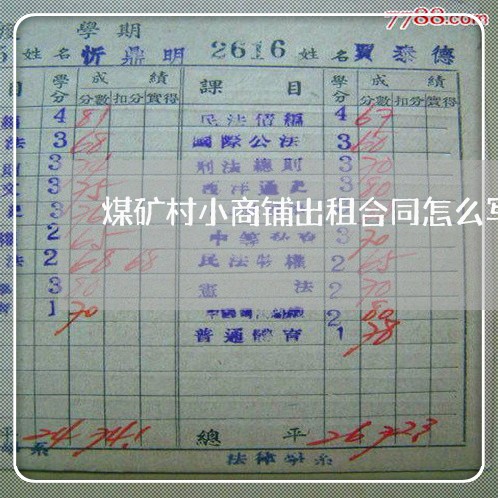 7788.com
學期
姓名 忻鼎明 2616 姓名 賈泰德
目 學分 成績 課目 學分 成績
分數 扣分 實得 分數 扣分 實得
4 81 民法債編 4 67
法 3 68 國際公法 3 60
3 刑法總則 3 70
3 75 西洋通史 3 80
煤矿村小商铺出租合同怎么写
2 65 3 70
法 2 68 68 民法物權 2 65
3 80 憲法 2 70
1 70 2 80
普通體育 1 78
平 24 74.1 總平 26 72.3
系 法律學系